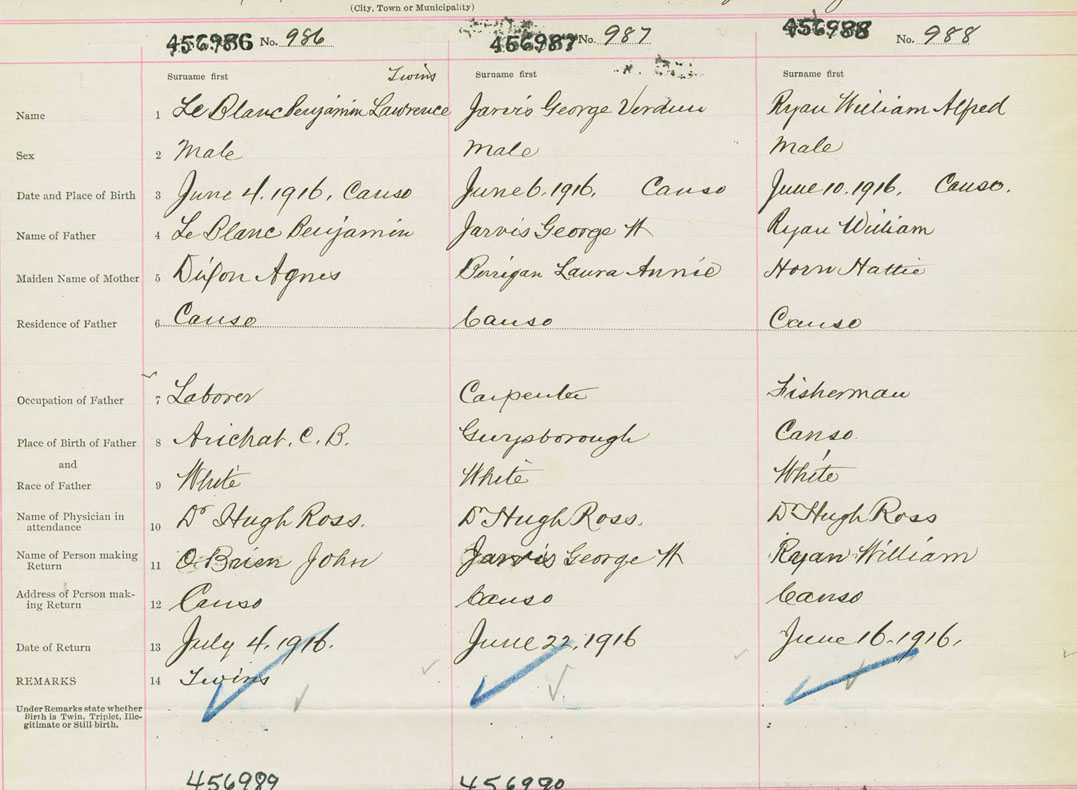 (City, Town or Municipality)
456986 No. 986 456987 No. 987 456988 No. 988
Surname first Twins Surname first Surname first
Name 1 Le Blanc Benjamin Lawrence Jarvis George Verdun Ryan William Alfred
Sex 2 Male Male Male
Date and Place of Birth 3 June 4. 1916, Canso June 6. 1916, Canso June 10. 1916, Canso.
Name of Father 4 Le Blanc Benjamin Jarvis George H Ryan William
Maiden Name of Mother 5 Dixon Agnes Laura Annie Horn Hattie
Residence of Father 6 Canso Canso Canso
Occupation of Father 7 Laborer Carpenter Fisherman
Place of Birth of Father 8 Arichat, C. B. Guysborough Canso
and
Race of Father 9 White White White
Name of Physician in
attendance 10 Dr Hugh Ross. Dr Hugh Ross. Dr Hugh Ross
Name of Person making
Return 11 O'Brien John Jarvis George H Ryan William
Address of Person mak-
ing Return 12 Canso Canso Canso
Date of Return 13 July 4. 1916. June 22, 1916 June 16. 1916.
REMARKS 14 Twins
Under Remarks state whether
Birth is Twin, Triplet, Ille-
gitimate or Still-birth.
456989 456990